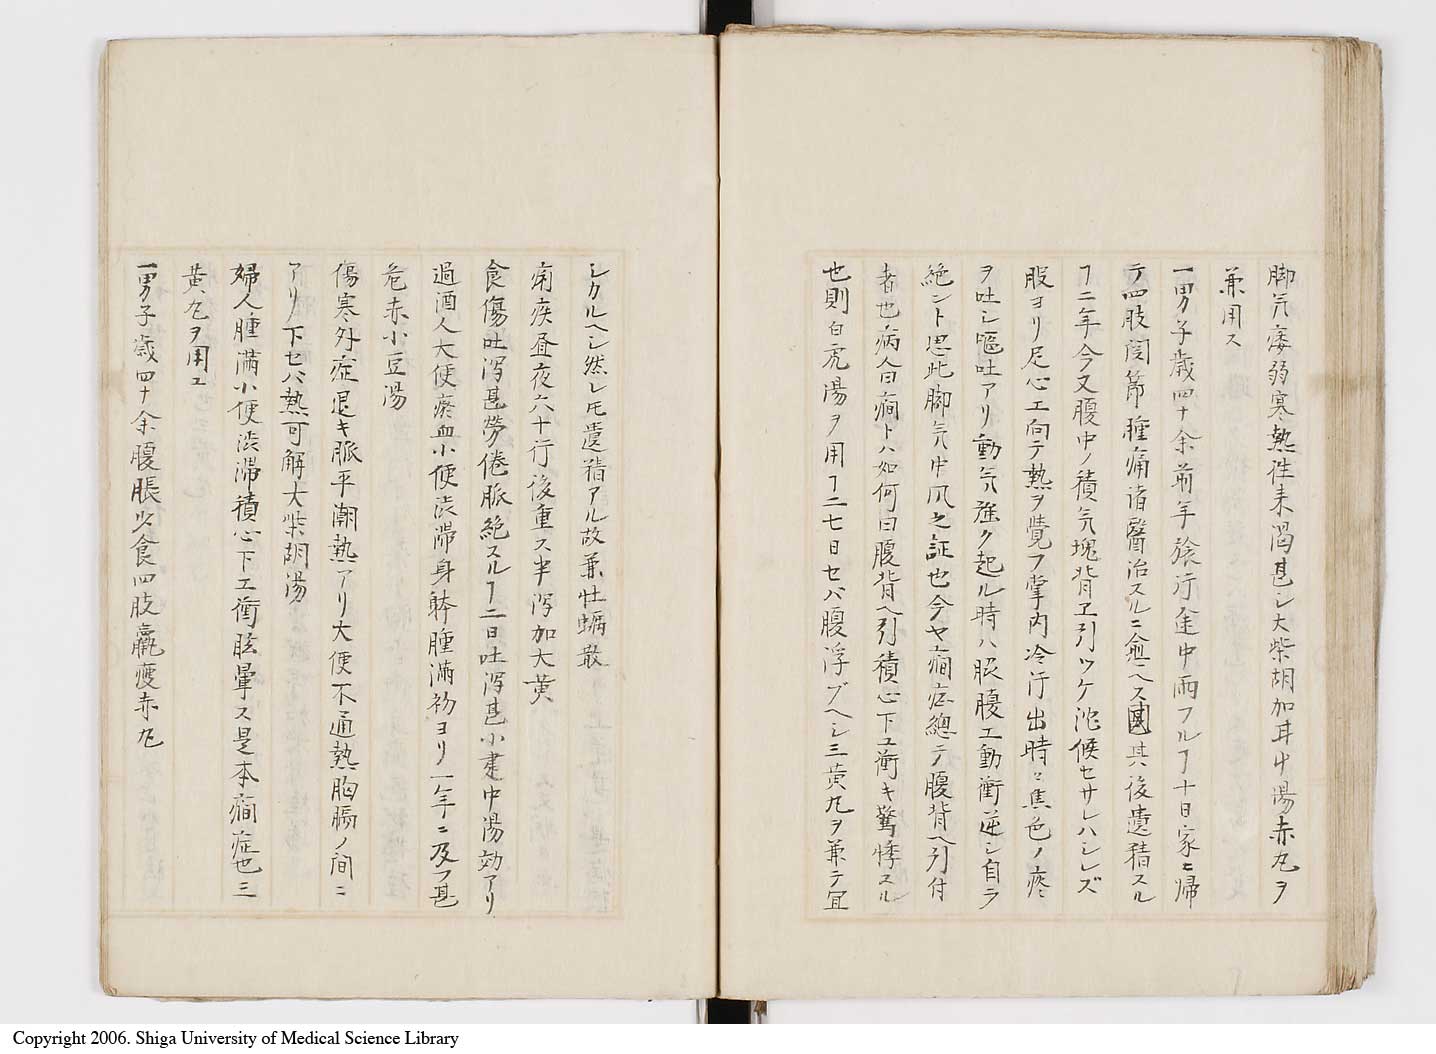 脚気痿弱寒熱徃来渇甚シ大柴胡加茸中湯赤丸ヲ
兼用ス
一男子歳四十余前年旅行途中雨フルヿ十日家ニ帰
テ四肢関節腫痛諸醫治スルニ愈ヘス其後遺積スル
ヿ二年今又腹中ノ積気塊背ヱ引ツケ沱候セサレハシレズ
股ヨリ足心エ向テ熱ヲ覺フ掌内冷汗出時々焦色ノ痰
ヲ吐シ嘔吐アリ動気強ク起ル時ハ眼腹エ動衝逆シ自ラ
絶ント思此脚気中风之証也今ヤ癇症總テ腹背ヘ引付
者也病人曰癇トハ如何曰腹背ヘ引積心下ユ衝キ驚悸スル
也則白虎湯ヲ用ヿ二七日セバ腹浮ブヘシ三黄丸ヲ兼テ宜
シカルヘシ然レ𪜈遺積アル故兼牡蠣散
痢疾昼夜六十行後重ス半瀉加大黄
食傷吐瀉甚勞倦脈絶スルヿ二日吐瀉甚小建中湯効アリ
過酒人大便瘀血小便渋滞身躰腫満初ヨリ一年ニ及フ甚
危赤小豆湯
傷寒外症退キ脈平潮熱アリ大便不通熱胸膈ノ間ニ
アリ下セバ熱可解大柴胡湯
婦人腫満小便渋滞積心下エ衝眩暈ス是本癇症也三
黄丸ヲ用ユ
一男子歳四十余腹脹少食四肢羸痩赤丸
Copyright 2006. Shiga University of Medical Science Library